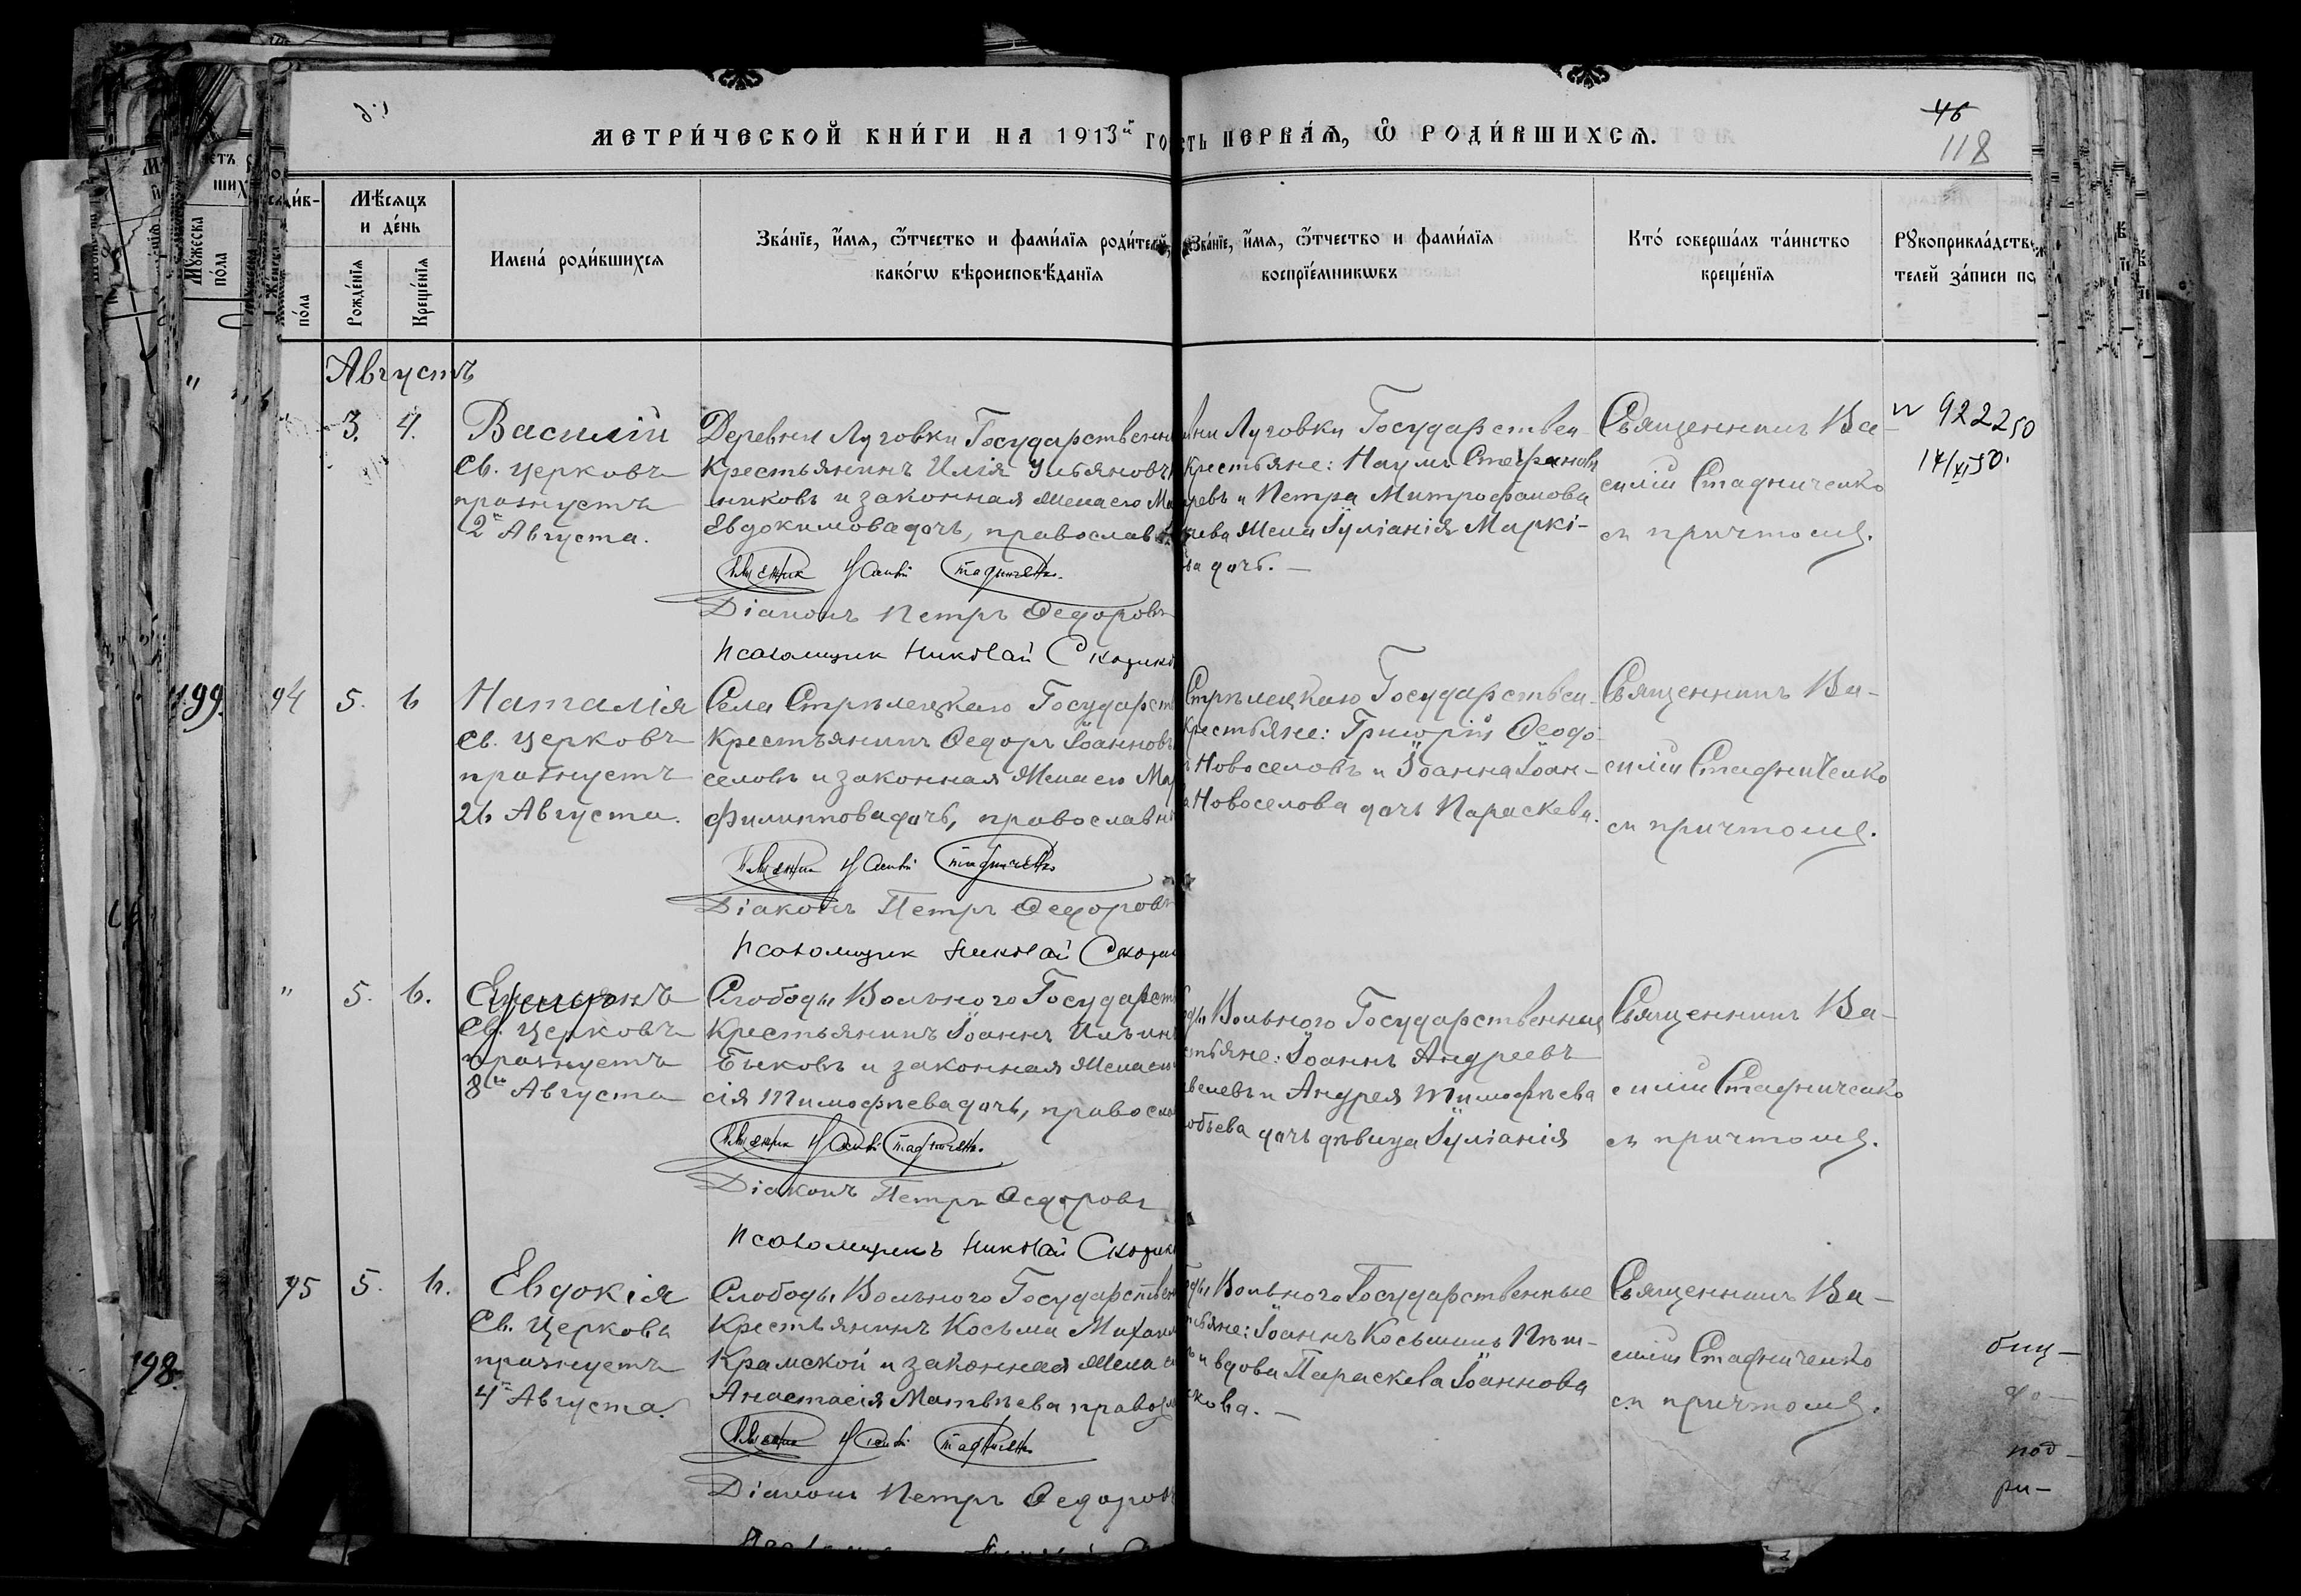 МЕТРИ́ЧЕСКОЙ КНИ́ГИ НА 1913й ГО
СТЬ ПЕРВА́Ѧ, Ѿ РОДИ́ВШИХСѦ.
46
118
Мѣ́сѧцъ
и де́нь
Имена́ роди́вшихсѧ
Зва́нїе, и҆́мѧ, ѻ҆́тчество и фами́лїѧ роди́телей,
како́гѡ вѣроисповѣ́данїѧ
Зва́нїе, и҆́мѧ, ѻ҆́тчество и фами́лїѧ
воспрїе́мникѡвъ
Кто́ соверша́лъ та́инство
креще́нїѧ
Рꙋкоприкла́дств
телей за́писи по
Мꙋ́жеска
по́ла
по́ла
Рожде́нїѧ
Креще́нїѧ
Августъ
3. 4.
Василій
Св. церковь
празнуетъ
2й Августа.
Деревни Луговки Государственн
крестьянинъ Илія Ульяновъ
никовъ и законная жена его Ма
Евдокимова дочь, православ
Діаконъ Петръ Ѳедоровъ
Псаломщик Николай
вни Луговки Государствен-
крестьяне: Наумъ Стефановъ
ревъ и Петра Митрофанова
ева жена Іуліанія Маркі-
ва дочь. —
Священникъ Ва-
силій Стадниченко
съ причтомъ.
N 922250
14/XI 50.
199. 94 5. 6
Наталія
Св. церковь
празнуетъ
26 Августа.
Села Стрѣлецкаго Государств
крестьянинъ Ѳедоръ Іоанновъ
селовъ и законная жена его Мар
Филиппова дочь, православн
Діаконъ Петръ Ѳедоровъ
Псаломщик Николай
Стрѣлецкаго Государствен-
крестьяне: Григорій Ѳеодо-
Новоселовъ и Іоанна Іоан-
а Новоселова дочь Параскева.
Священникъ Ва-
силій Стадниченко
съ причтомъ.
" 5. 6.
Емельянъ
Св. церковь
празнуетъ
8й Августа
Слободы Вольного Государст
крестьянинъ Іоаннъ Ильинъ
Быковъ и законная жена его
сія Тимофѣева дочь, правосла
Діаконъ Петръ Ѳедоровъ
Псаломщикъ Николай
ды Вольного Государственныя
стьяне: Іоаннъ Андреевъ
велевъ и Андрея Тимофѣева
обьева дочь дѣвица Іуліанія
Священникъ Ва-
силій Стадниченко
съ причтомъ.
198. 95 5. 6.
Евдокія
Св. Церковь
празнуетъ
4й Августа.
Слободы Вольного Государствен
крестьянинъ Косьма Михаил
Крамской и законная жена е
Анастасія Матвѣева правосл
Діаконъ Петръ Ѳедоровъ
ды Вольного Государственные
тьяне: Іоаннъ Косьминъ Пѣш-
ъ и вдова Параскева Іоаннова
кова. —
Священникъ Ва-
силій Стадниченко
съ причтомъ.